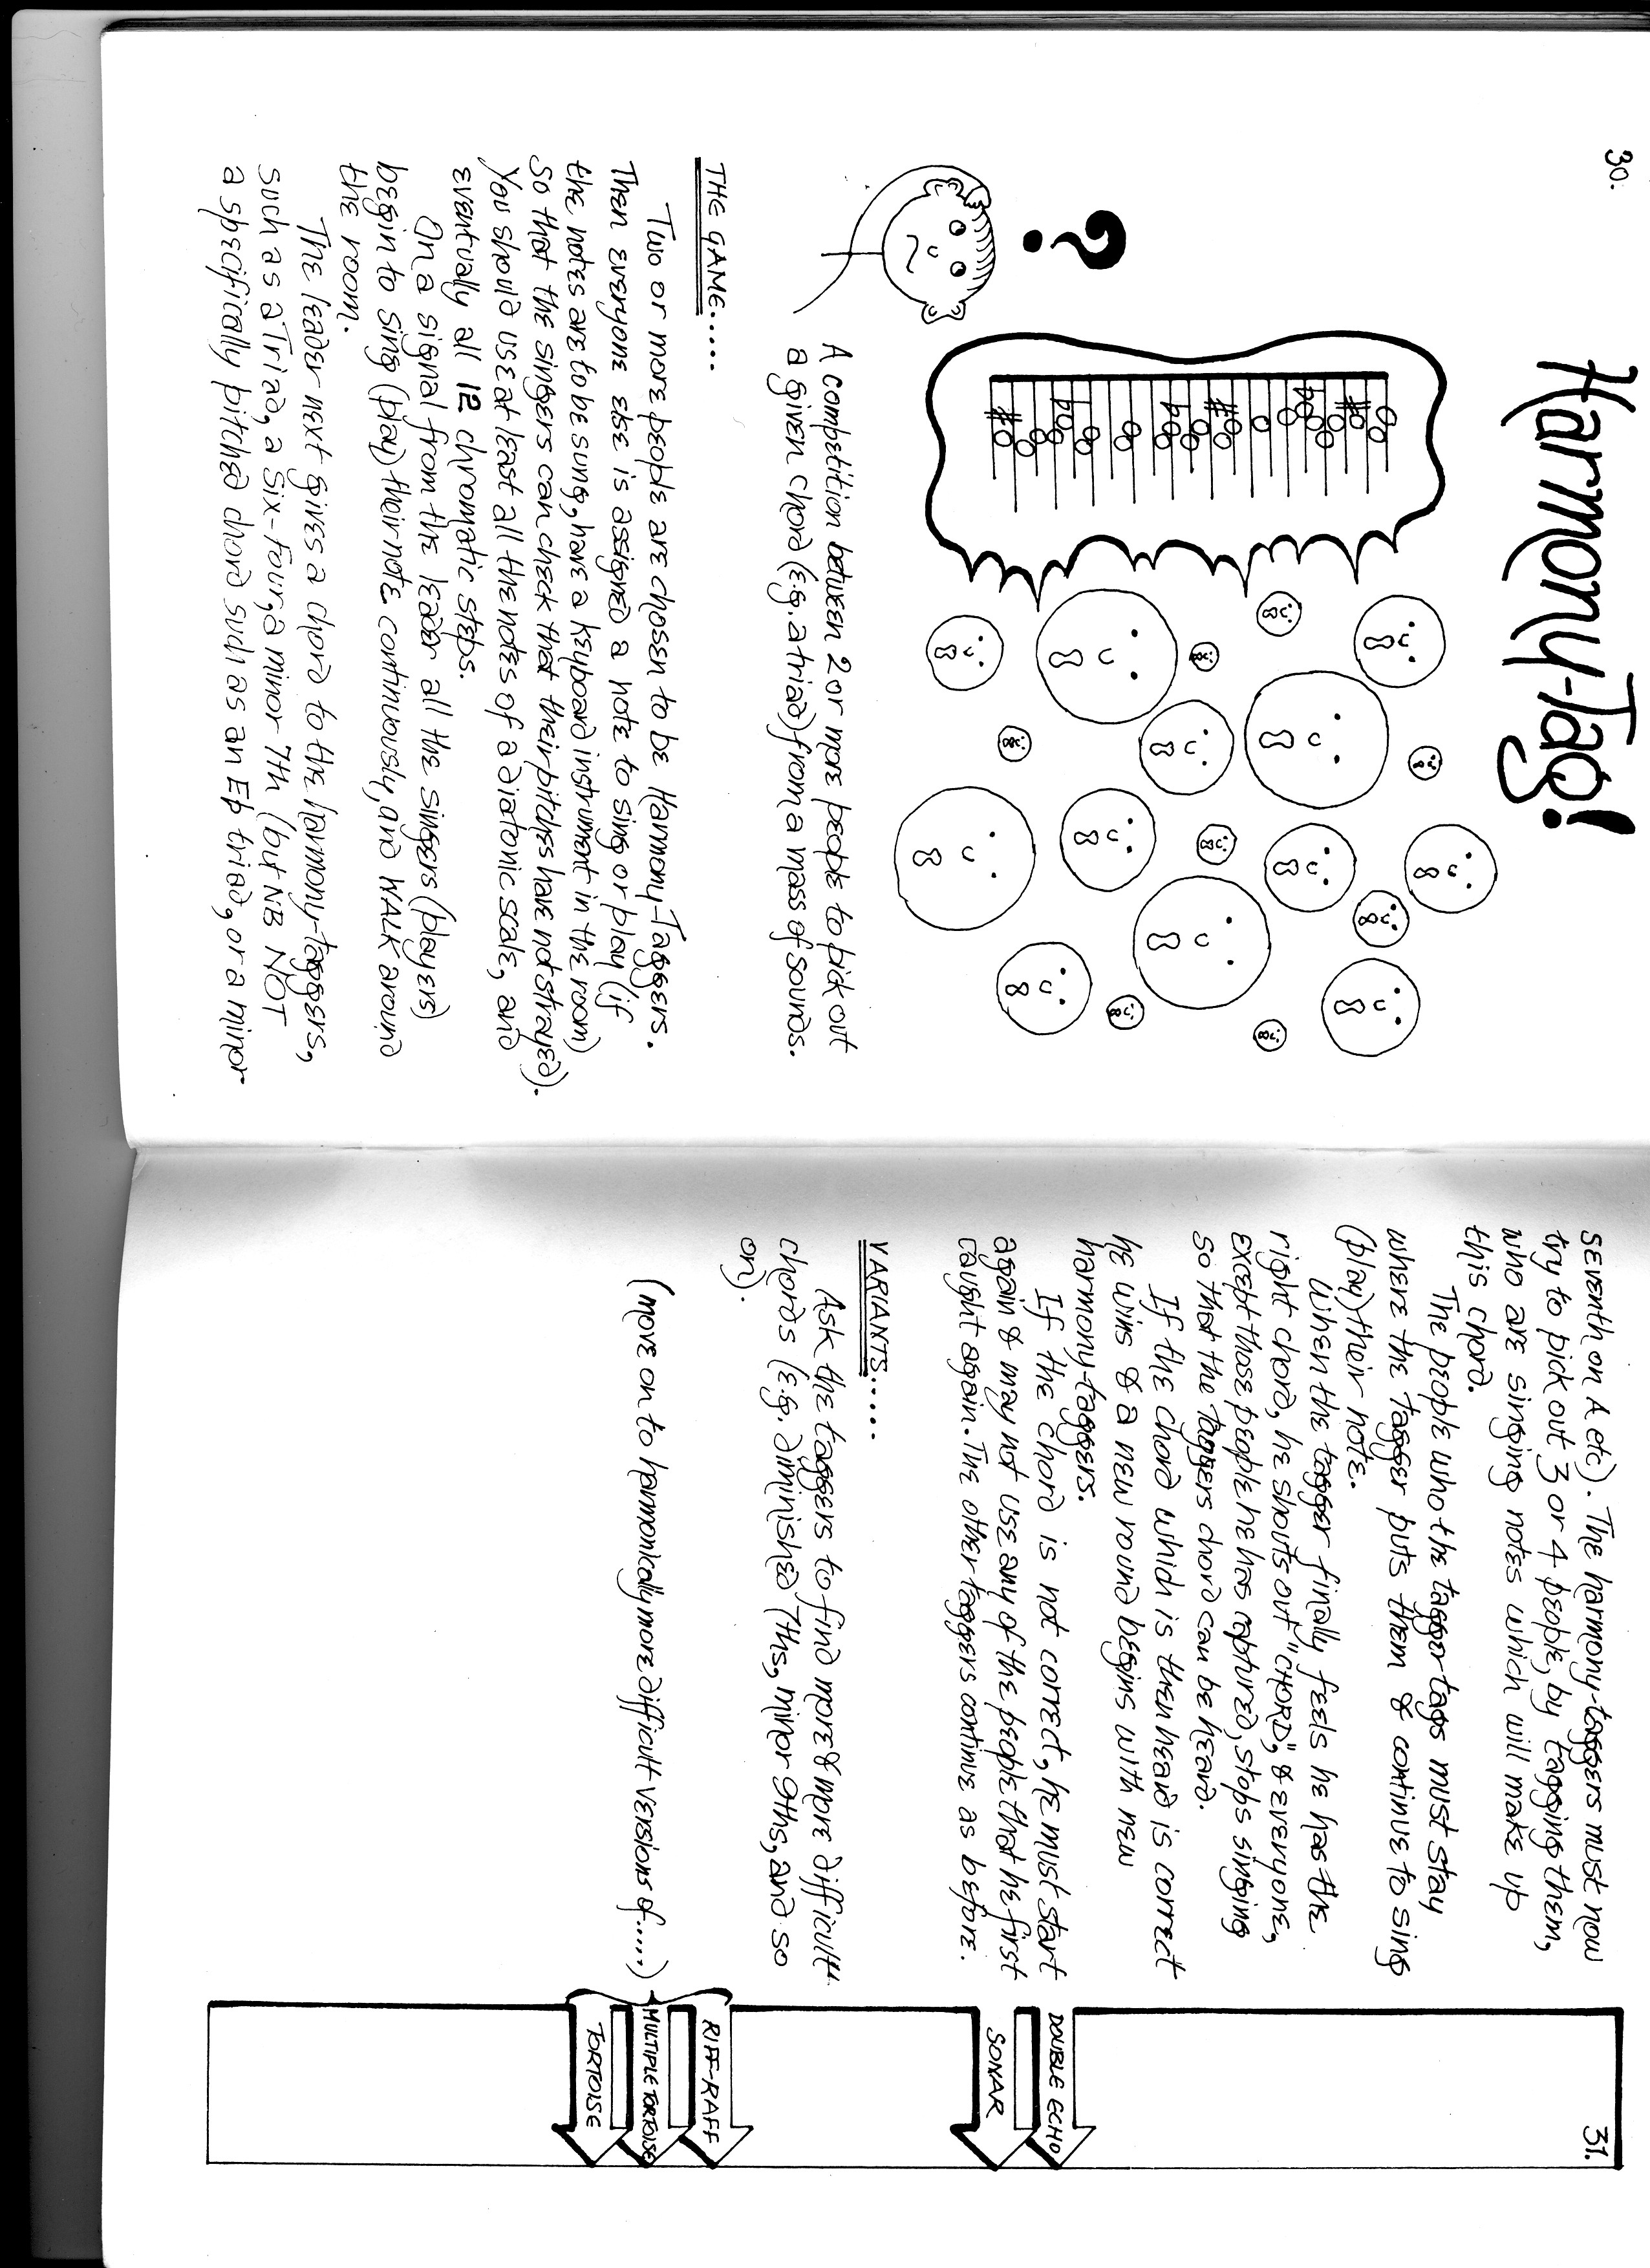 30.
Harmony-Tag!
?
A competition between 2 or more people to pick out
a given chord (e.g. a triad) from a mass of sounds.
THE GAME.....
Two or more people are chosen to be Harmony-Taggers.
Then everyone else is assigned a note to sing or play (if
the notes are to be sung, have a keyboard instrument in the room)
so that the singers can check that their pitches have not strayed).
You should use at least all the notes of a diatonic scale, and
eventually all 12 chromatic steps.
On a signal from the leader all the singers (players)
begin to sing (play) their note continuously, and WALK around
the room.
The leader next gives a chord to the harmony-taggers,
such as a Triad, a Six-Four, a minor 7th (but NB NOT
a specifically pitched chord such as an E♭ triad, or a minor
31.
seventh on A etc). The harmony-taggers must now
try to pick out 3 or 4 people, by tagging them,
who are singing notes which will make up
this chord.
The people who the tagger tags must stay
where the tagger puts them & continue to sing
(play) their note.
When the tagger finally feels he has the
right chord, he shouts out "CHORD", & everyone,
except those people he has captured, stops singing
so that the taggers chord can be heard.
If the chord which is then heard is correct
he wins & a new round begins with new
harmony-taggers.
If the chord is not correct, he must start
again & may not use any of the people that he first
caught again. The other taggers continue as before.
VARIANTS.....
Ask the taggers to find more & more difficult
chords (e.g. diminished 7ths, minor 9ths, and so
on).
(move on to harmonically more difficult versions of.....)
DOUBLE ECHO
SONAR
RIFF-RAFF
MULTIPLE TORTOISE
TORTOISE